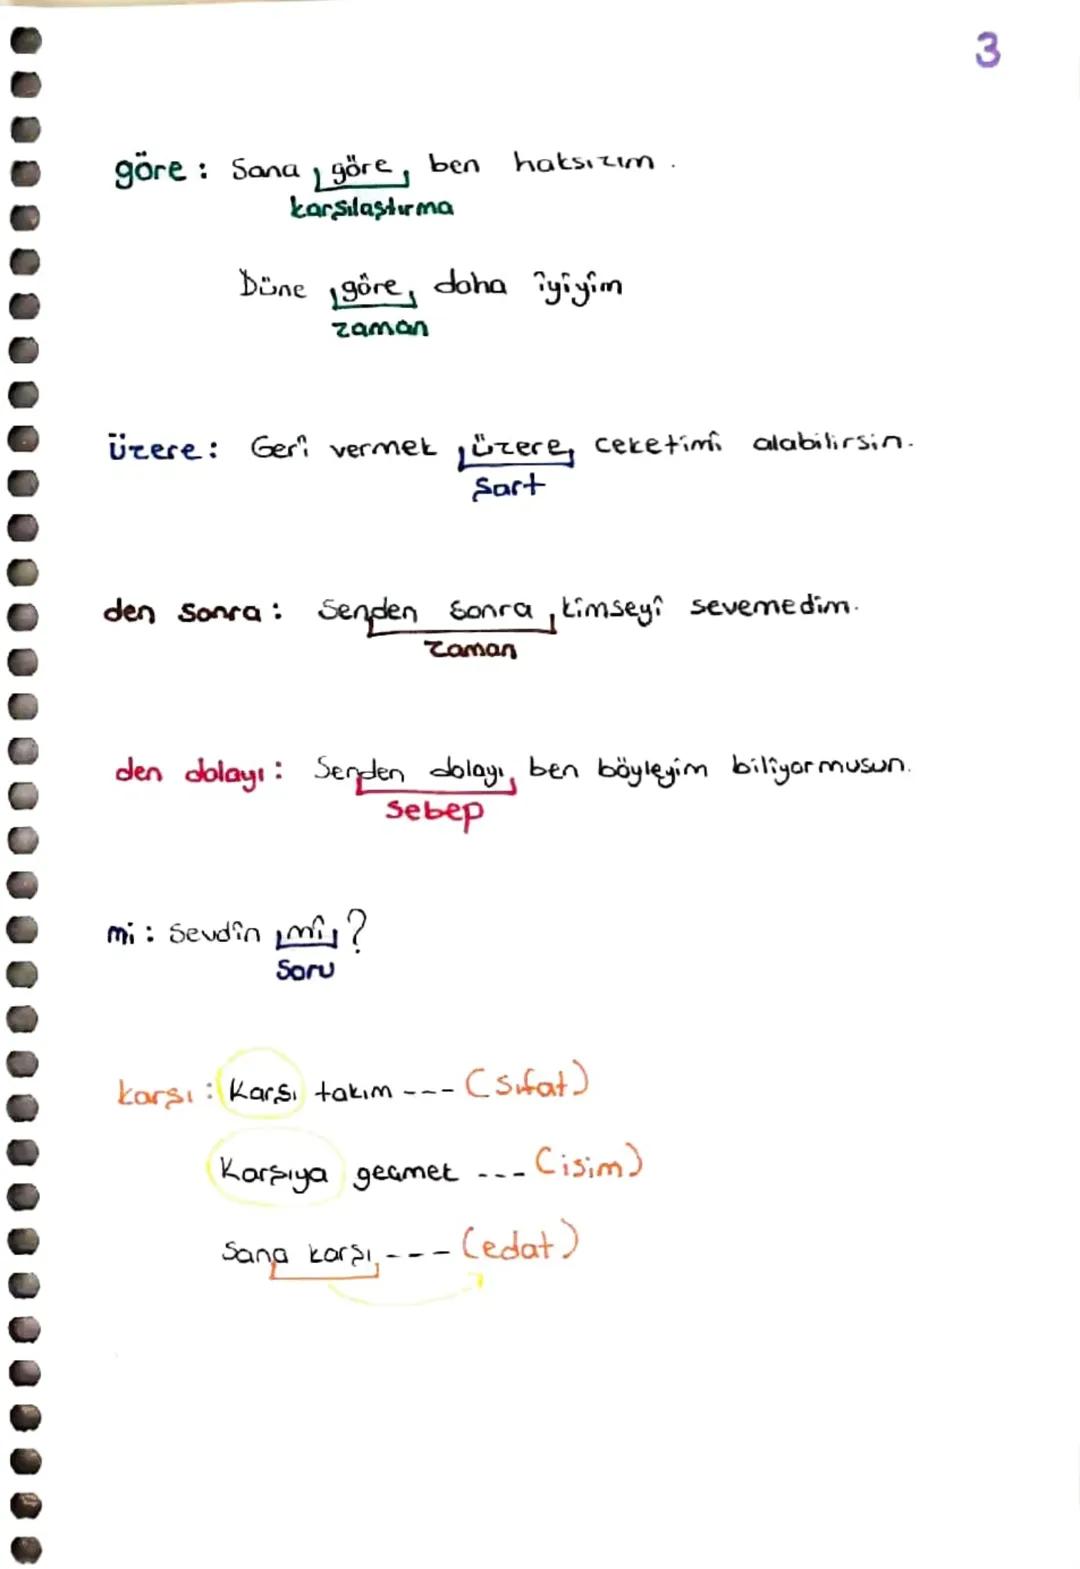 3
göre : Sana göre, ben haksızım.
karşılaştırma
Düne göre, daha iyiyim
zaman
üzere : Geri vermek üzere, ceketimi alabilirsin.
Şart
den sonra : Senden sonra kimseyi sevemedim.
zaman
den dolayı : Senden dolayı, ben böyleyim biliyormusun.
Sebep
mi : Sevdin mi ?
Soru
karşı : Karşı takım --- (Sıfat)
Karşıya geçmek --- (isim)
Sana karşı --- (edat)